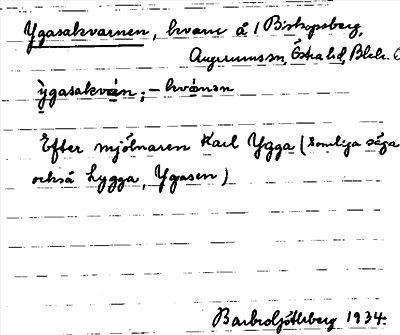 Ygasakvarnen, kvarn å / Biskopsberg,
Augerums sn, Östra hd, Blek. 
ỳgasakvän; - kvånən
Efter mjölnaren Karl Ygga (somliga säga
också Lygga, Ygasen)
Barbro Götlberg 1934.